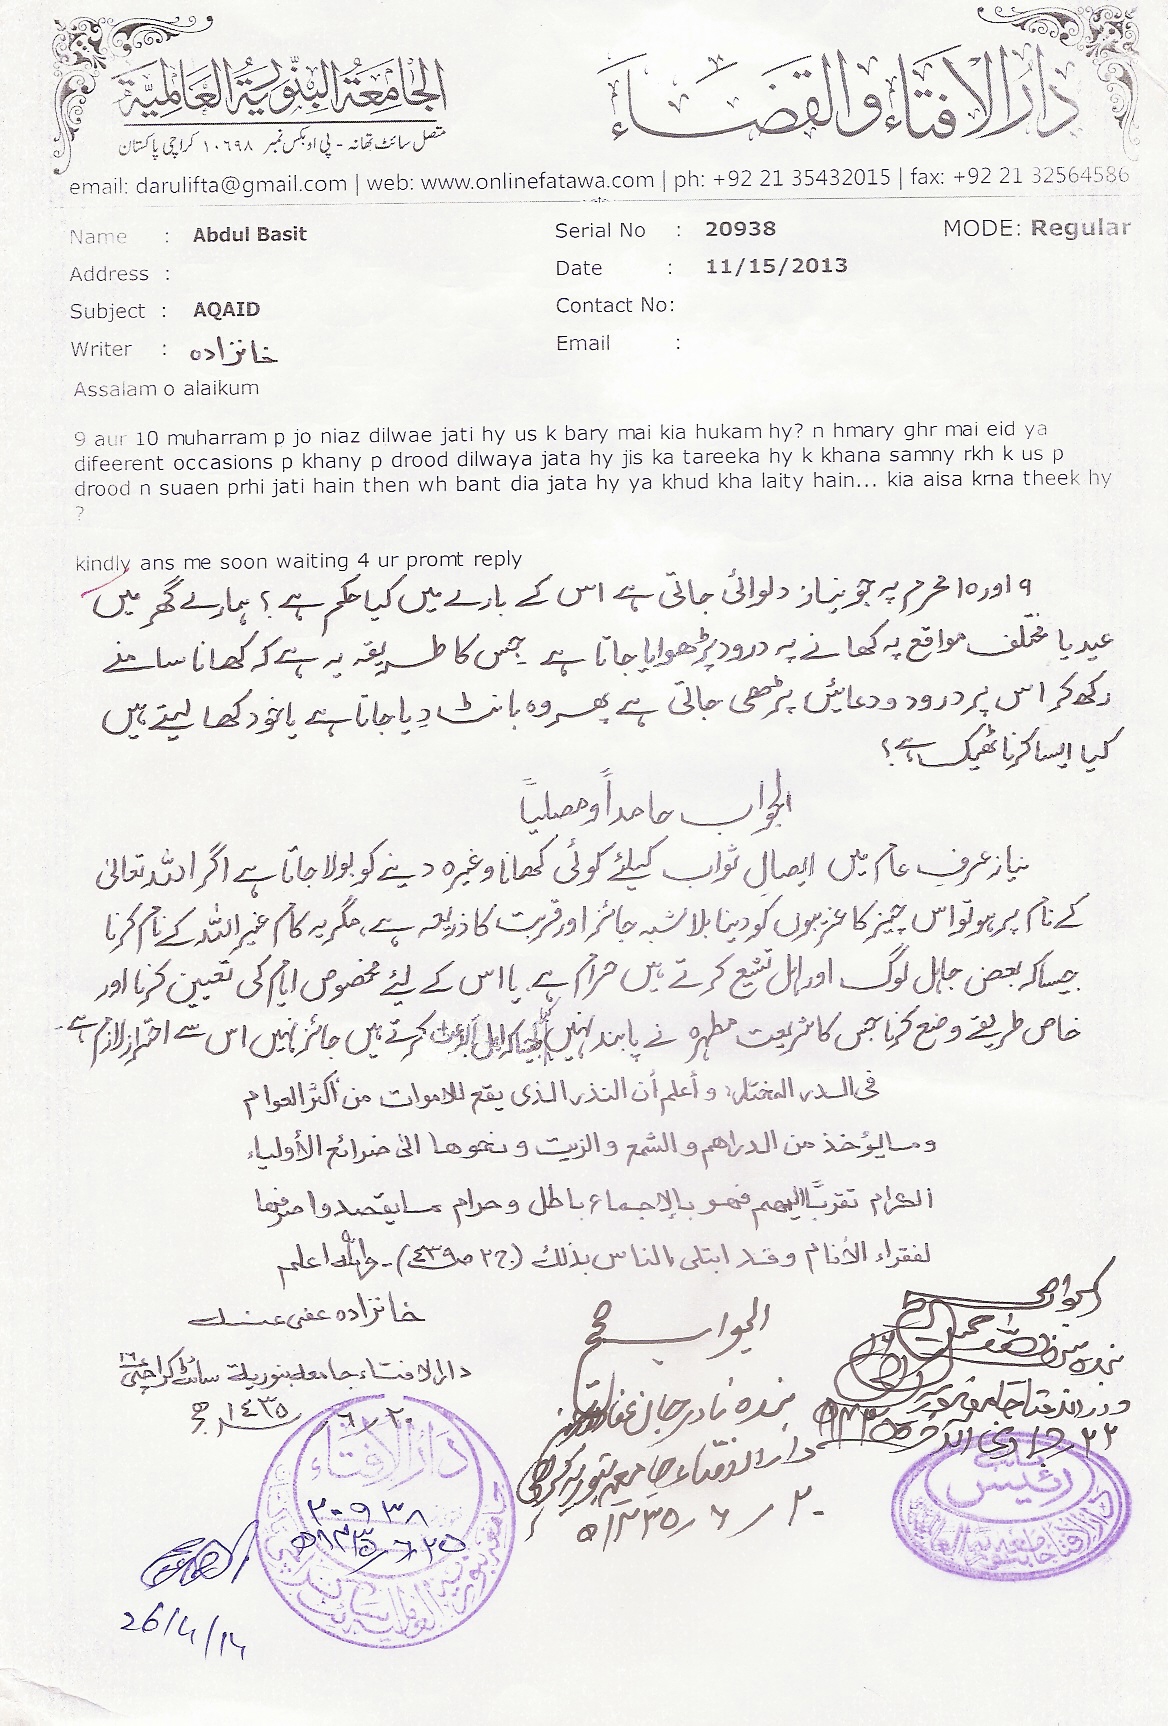 دارالافتاء والقضاء
الجامعة البنورية العالمية
متصل سائٹ تھانہ - پی او بکس نمبر ۱۰۶۹۸ کراچی پاکستان
email: darulifta@gmail.com | web: www.onlinefatawa.com | ph: +92 21 35432015 | fax: +92 21 32564586
Name : Abdul Basit Serial No : 20938 MODE: Regular
Address : Date : 11/15/2013
Subject : AQAID Contact No:
Writer : خانزادہ Email :
Assalam o alaikum
9 aur 10 muharram p jo niaz dilwae jati hy us k bary mai kia hukam hy? n hmary ghr mai eid ya
difeerent occasions p khany p drood dilwaya jata hy jis ka tareeka hy k khana samny rkh k us p
drood n suaen prhi jati hain then wh bant dia jata hy ya khud kha laity hain... kia aisa krna theek hy
?
kindly ans me soon waiting 4 ur promt reply
۹ اور ۱۰ محرم پہ جو نیاز دلوائی جاتی ہے اس کے بارے میں کیا حکم ہے؟ ہمارے گھر میں
عید یا مختلف مواقع پہ کھانے پہ درود پڑھوایا جاتا ہے ۔ جس کا طریقہ یہ ہے کہ کھانا سامنے
رکھ کر اس پر درود و دعائیں پڑھی جاتی ہے پھر وہ بانٹ دیا جاتا ہے یا خود کھا لیتے ہیں
کیا ایسا کرنا ٹھیک ہے؟
الجواب حامداً ومصلیاً
نیاز عرفِ عام میں ایصالِ ثواب کیلئے کوئی کھانا وغیرہ دینے کو بولا جاتا ہے اگر اللہ تعالیٰ
کے نام پر ہو تو اس چیز کا غریبوں کو دینا بلا شبہ جائز اور قربت کا ذریعہ ہے، مگر یہ کام غیر اللہ کے نام کرنا
جیساکہ بعض جاہل لوگ اور اہل تشیع کرتے ہیں حرام ہے یا اس کے لیئے مخصوص ایام کی تعیین کرنا اور
خاص طریقے وضع کرنا جس کا شریعت مطہرہ نے پابند نہیں کیا جیساکہ اہل بدعت کرتے ہیں جائز نہیں اس سے احتراز لازم ہے ۔
فی الدر المختار: وأعلم أن النذر الذی یقع للاموات من أکثر العوام
وما یؤخذ من الدراهم والشمع والزیت ونحوها الی ضرائع الأولیاء
الکرام تقرباً الیهم فهو بالإجماع باطل وحرام ما یقصدوا صرفها
لفقراء الأنام وقد ابتلی الناس بذلك (ج۲ ص۴۳۹) ۔ واللہ اعلم
خانزادہ عفی عنہ
دارالافتاء جامعہ بنوریہ سائٹ کراچی ۱۶
۲۰ / ۶ / ۱۴۳۵ ھ
الجواب صحیح
بندہ نادر جان
دارالافتاء جامعہ بنوریہ کراچی
۲۰ / ۶ / ۱۴۳۵ ھ
الجواب صحیح
دارالافتاء
۲۰۹۳۸
۲۵ / ۶ / ۱۴۳۵ ھ
رئیس
26/4/14